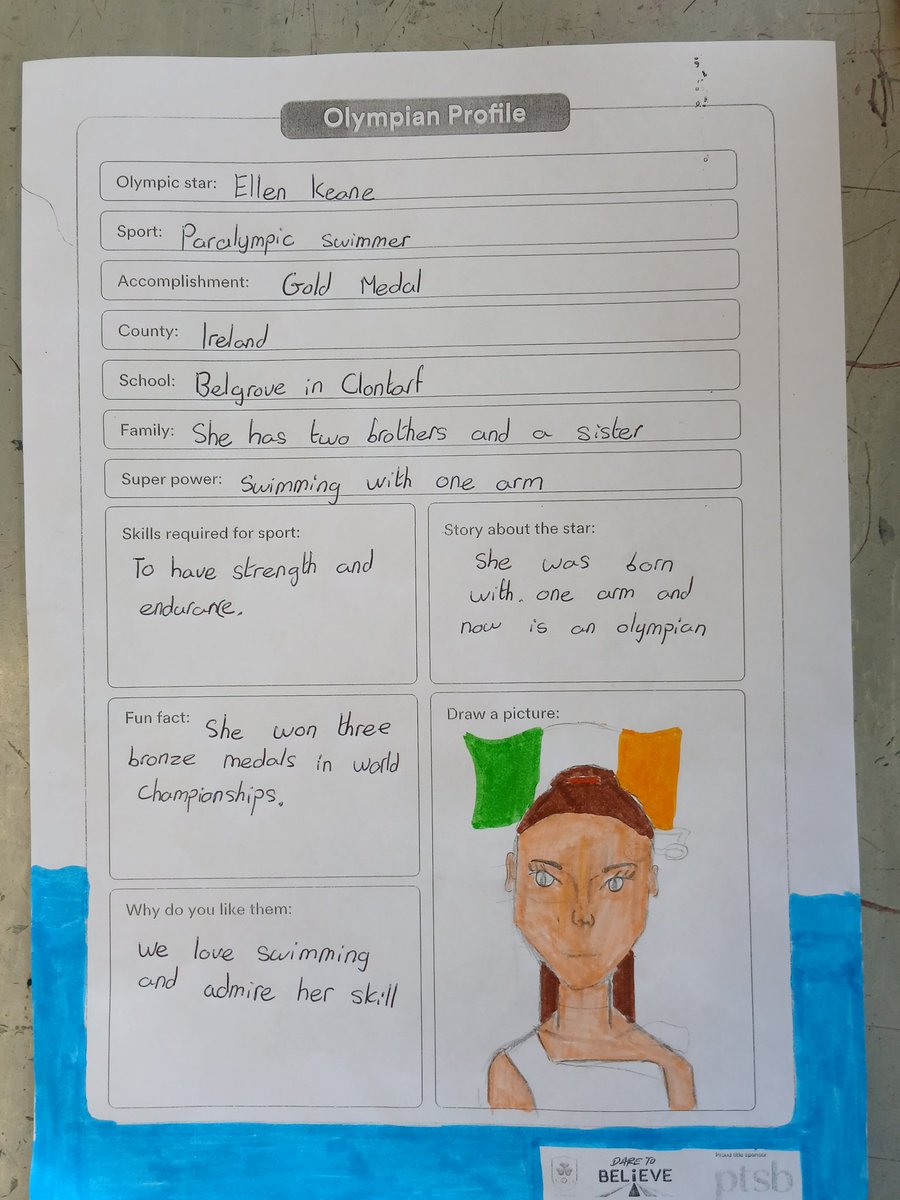 Olympian Profile
Olympic star: Ellen Keane
Sport: Paralympic swimmer
Accomplishment: Gold Medal
County: Ireland
School: Belgrove in Clontarf
Family: She has two brothers and a sister
Super power: Swimming with one arm
Skills required for sport:
To have strength and
endurance.
Story about the star:
She was born
with. one arm and
now is an olympian
Fun fact: She won three
bronze medals in world
championships.
Draw a picture:
Why do you like them:
we love swimming
and admire her skill
DARE TO
BELiEVE
Proud title sponsor
ptsb